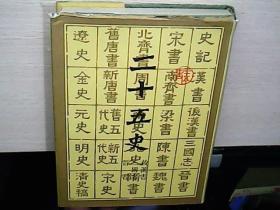 二十五史
史記
漢書
後漢書
三國志
晉書
宋書
南齊書
梁書
陳書
魏書
北齊書
周書
舊唐書
新唐書
舊五代史
新五代史
宋史
遼史
金史
元史
明史
清史稿